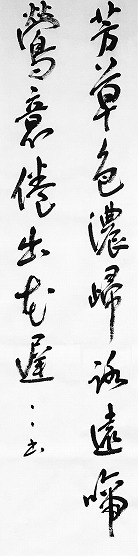 芳草色濃歸詠遠啼
鶯意倦出花遲